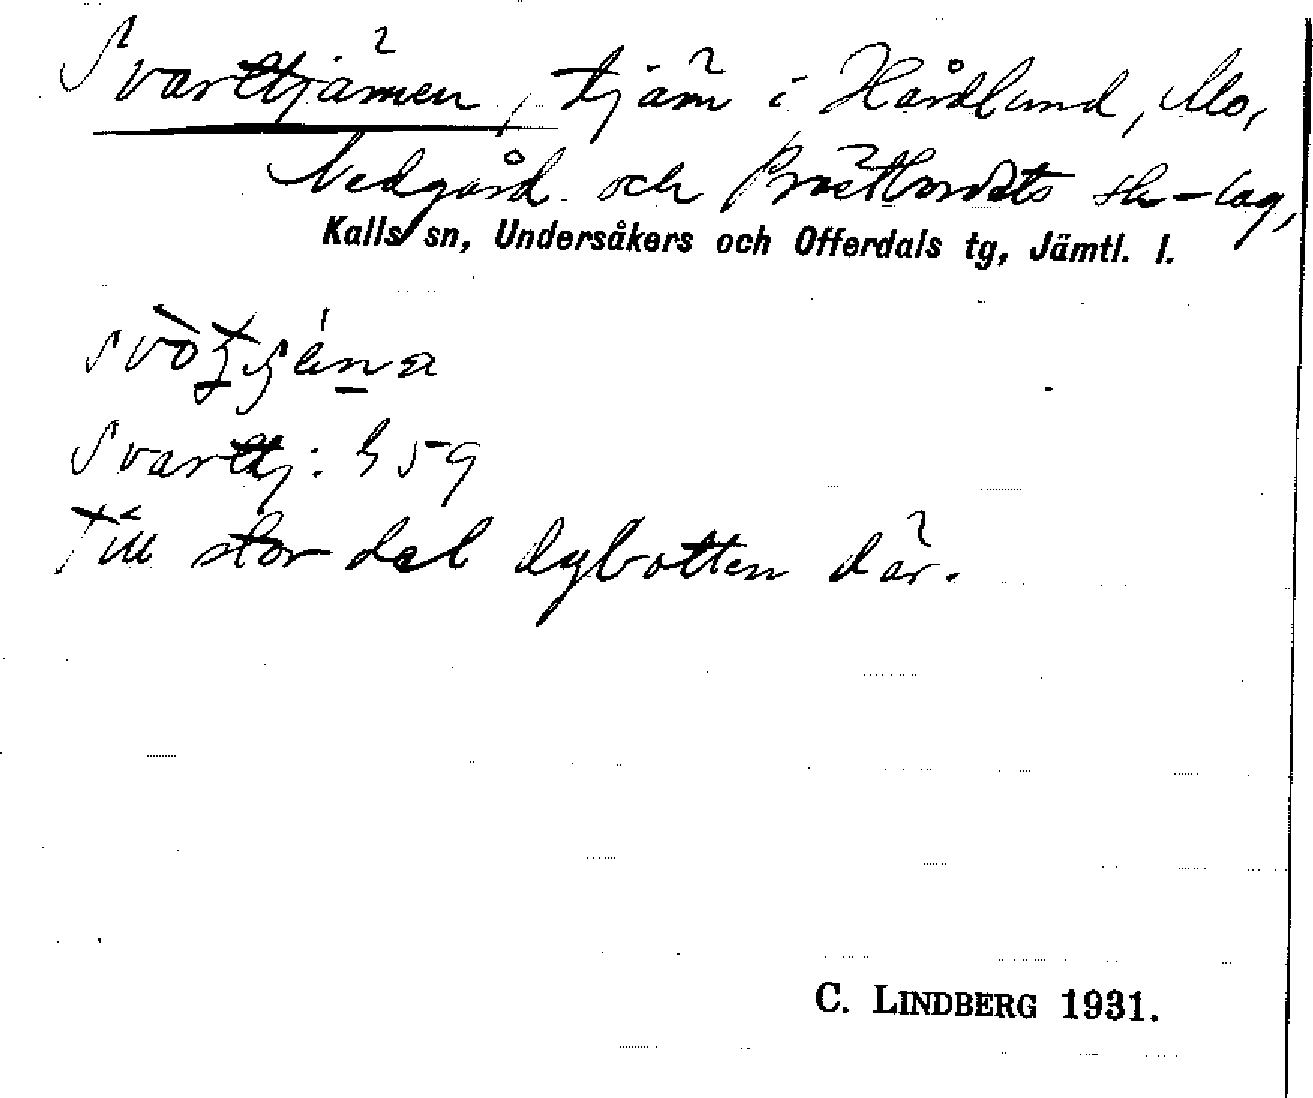 Svarttjärnen, tjärn i Hårdlund, Mo,
Nedgård och Prästbordets sk-lag,
Kalls sn, Undersåkers och Offerdals tg, Jämtl. l.
Svarttj: b 59
Till stor del dybotten där.
C. LINDBERG 1931.